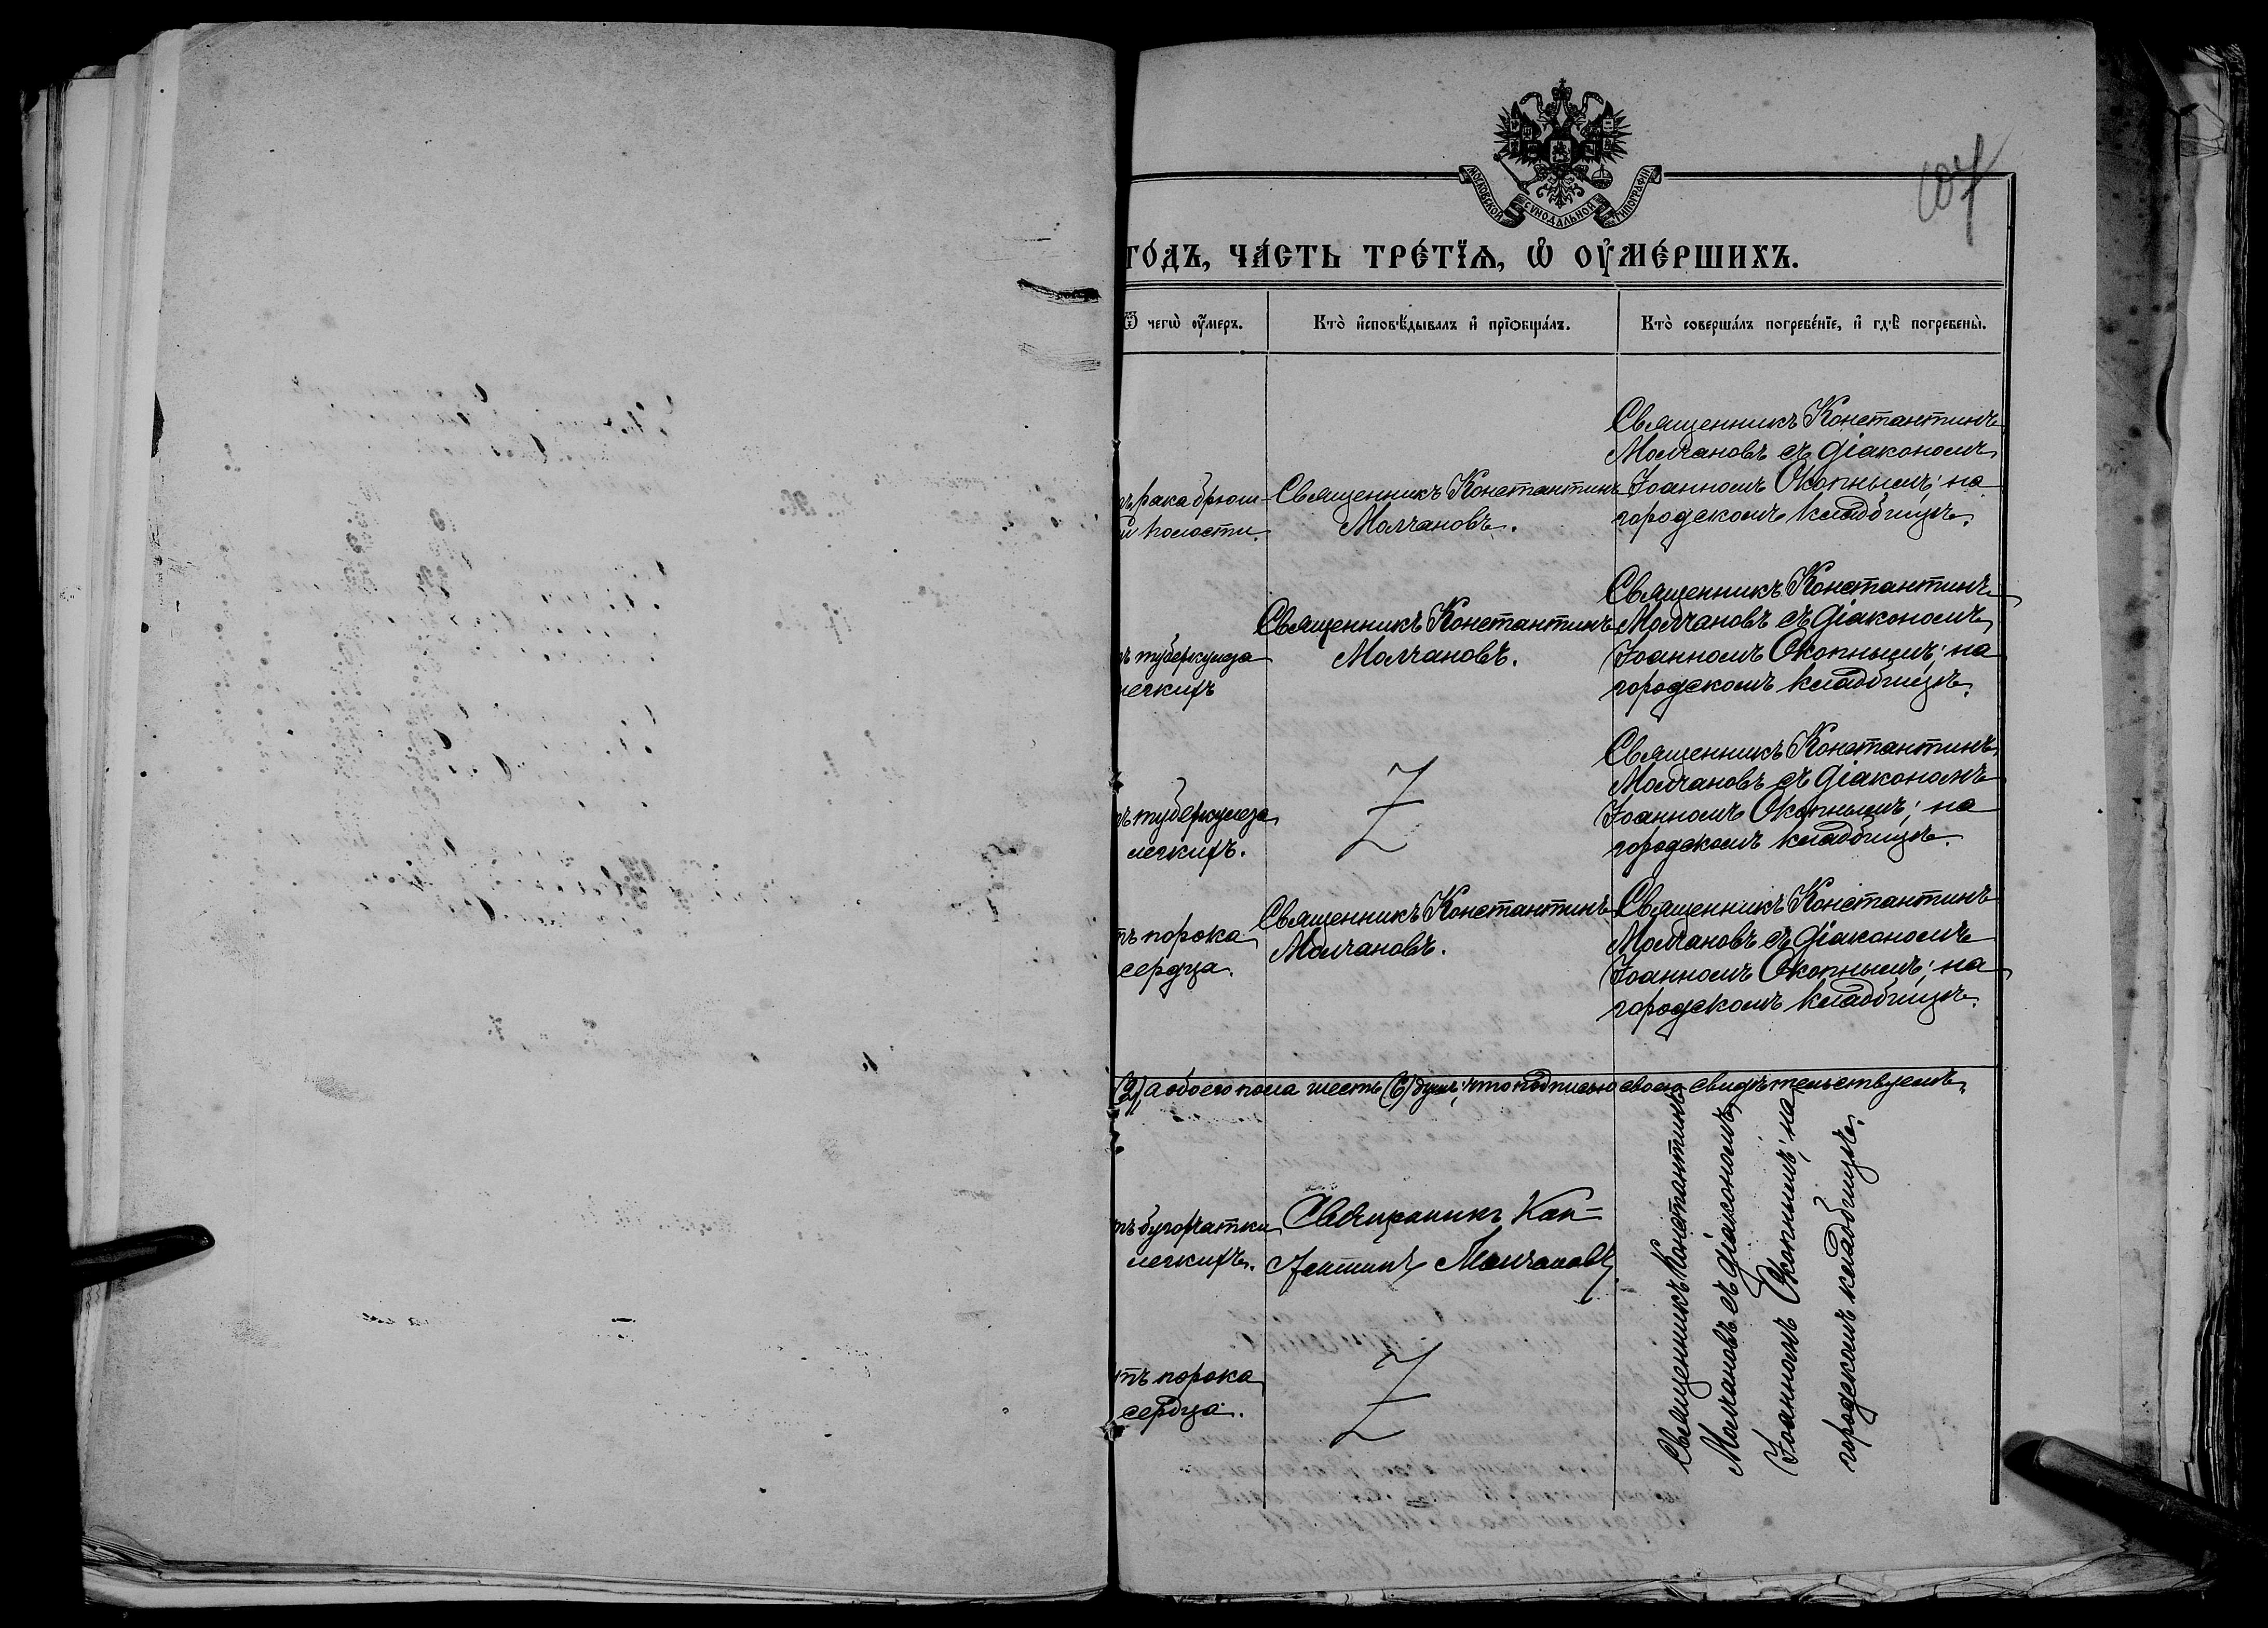 МОСКОВСКОЙ СѴНОДАЛЬНОЙ ТИПОГРАФІИ
го́дъ, ча́сть тре́тїѧ, ѡ҆ ᲂу҆ме́ршихъ.
Ѿ чегѡ̀ ᲂу҆́меръ.
Кто̀ и҆сповѣ́дывалъ и҆ прїѻбща́лъ.
Кто̀ соверша́лъ погребе́нїе, и҆ гдѣ̀ погребены̀.
ъ рака брюш-
й полости.
Священникъ Константинъ
Молчановъ.
Священникъ Константинъ
Молчановъ съ діакономъ
Іоанномъ Окопнымъ; на
городскомъ кладбищѣ.
ъ туберкулеза
легкихъ
Священникъ Константинъ
Молчановъ.
Священникъ Константинъ
Молчановъ съ діакономъ
Іоанномъ Окопнымъ; на
городскомъ кладбищѣ.
ъ туберкулеза
легкихъ.
Священникъ Константинъ
Молчановъ съ діакономъ
Іоанномъ Окопнымъ; на
городскомъ кладбищѣ.
тъ порока
сердца.
Священникъ Константинъ
Молчановъ.
Священникъ Константинъ
Молчановъ съ діакономъ
Іоанномъ Окопнымъ; на
городскомъ кладбищѣ.
(2), а обоего пола шесть (6) душъ, что подписью своею свидѣтельствуемъ.
тъ бугорчатки
легкихъ.
Священникъ Кон=
стантинъ Молчановъ
Священникъ Константинъ
Молчановъ съ діакономъ
Іоанномъ Окопнымъ; на
городскомъ кладбищѣ.
тъ порока
сердца.